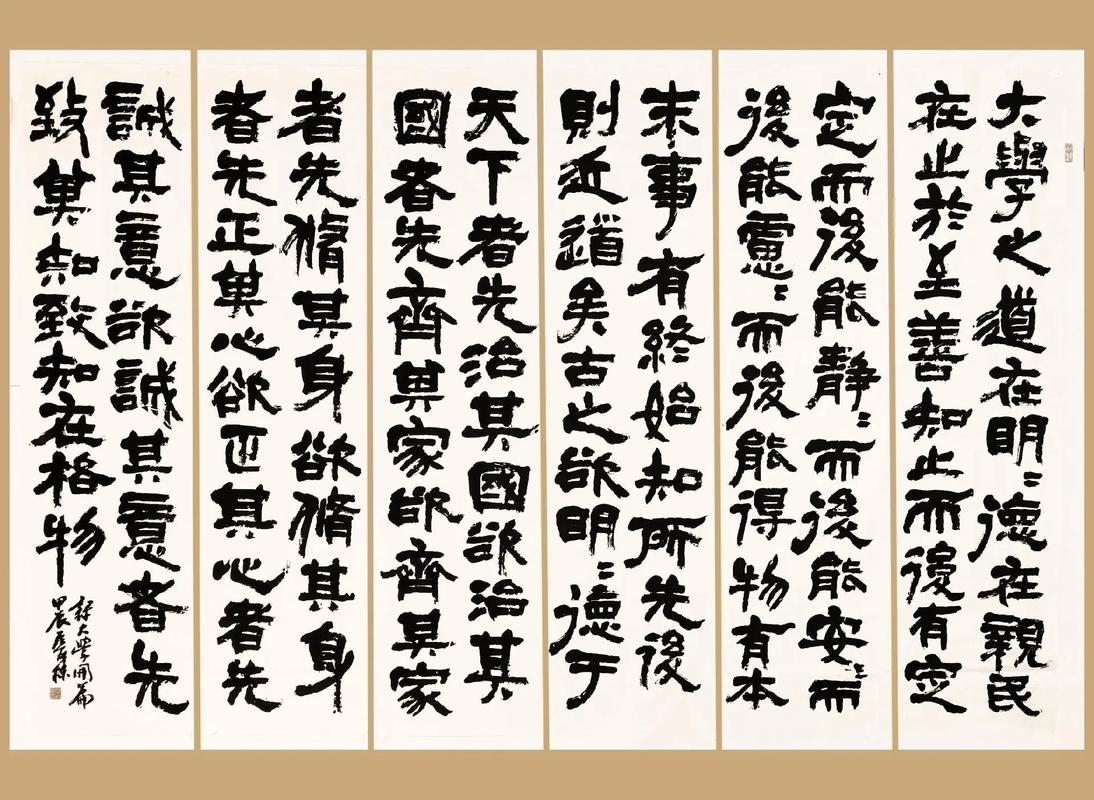 大學之道在明〻德在親民
在止於至善知止而後有定
定而後能静〻而後能安〻而
後能慮〻而後能得物有本
末事有終始知所先後
則近道矣古之欲明〻德于
天下者先治其國欲治其
國者先齊其家欲齊其家
者先脩其身欲脩其身
者先正其心欲正其心者先
誠其意欲誠其意者先
致其知致知在格物
大學開篇
甲辰